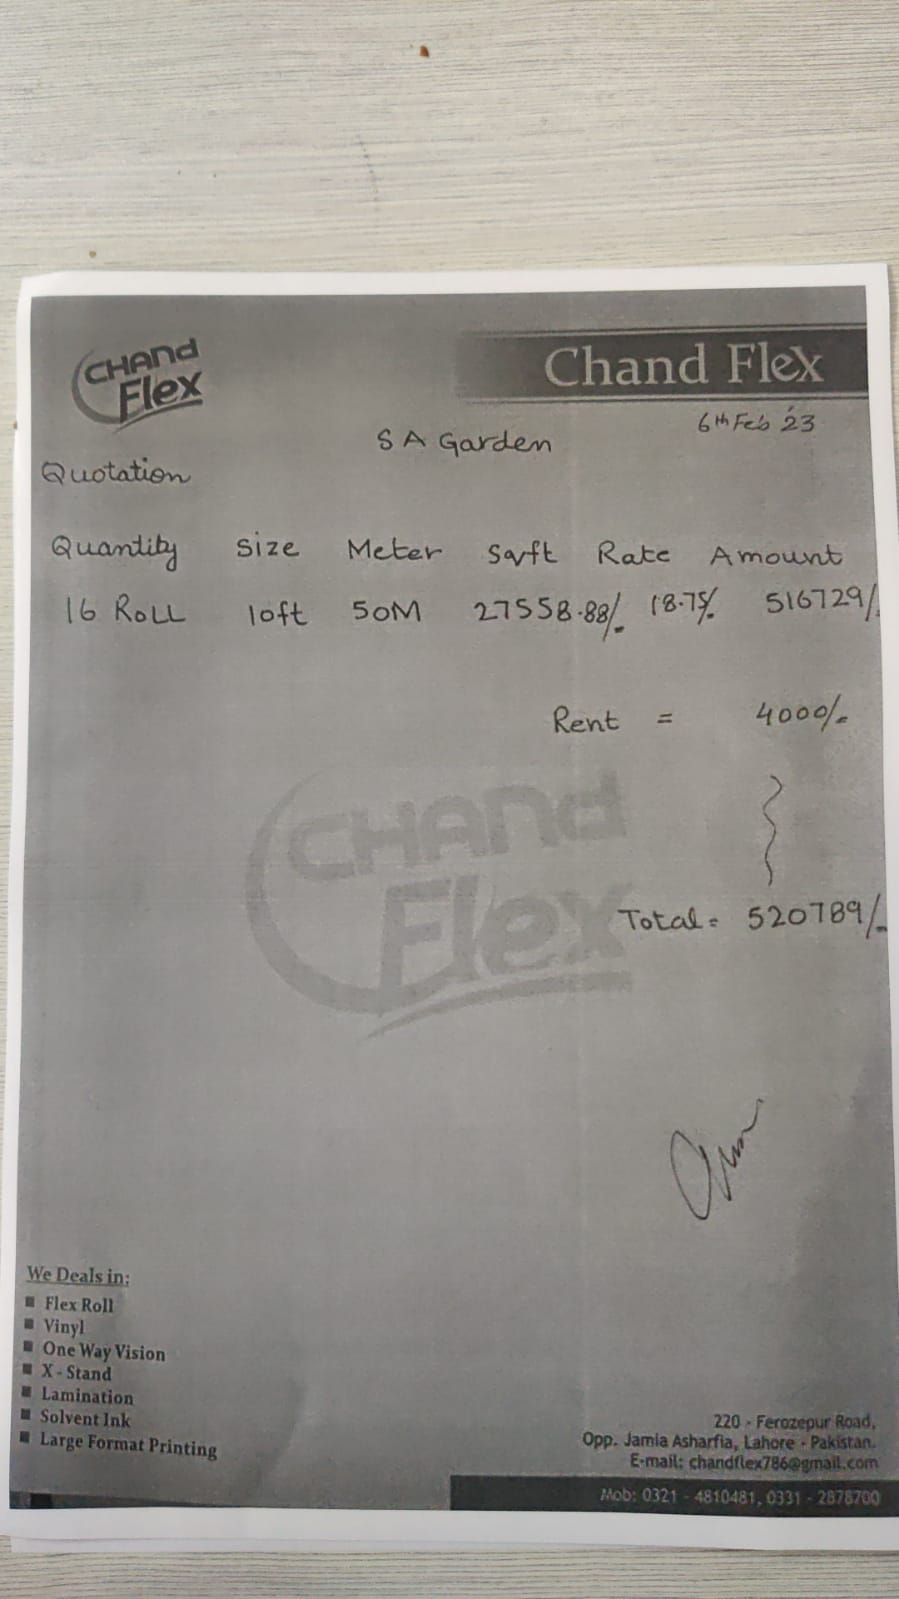 CHAND
Flex
Chand Flex
6th Feb '23
S A Garden
Quotation
Quantity Size Meter Sqft Rate Amount
16 ROLL 10ft 50M 27558.88/- 18.75/- 516729/-
Rent = 4000/-
CHAND
Flex
Total = 520789/-
We Deals in:
■ Flex Roll
■ Vinyl
■ One Way Vision
■ X - Stand
■ Lamination
■ Solvent Ink
■ Large Format Printing
220 - Ferozepur Road,
Opp. Jamia Asharfia, Lahore - Pakistan.
E-mail: chandflex786@gmail.com
Mob: 0321 - 4810481, 0331 - 2878700